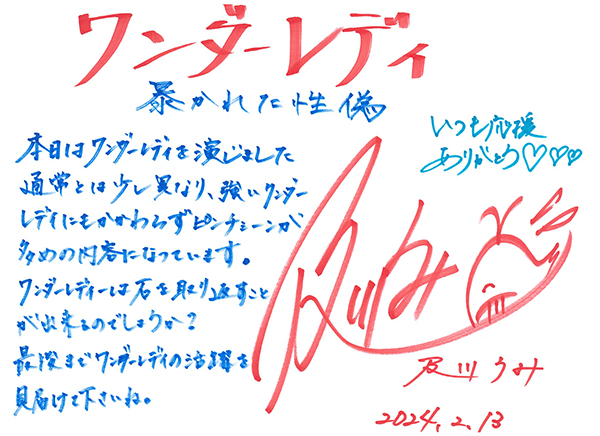 ワンダーレディ
暴かれた性偽
いつも応援
ありがとう♡♡♡
本日はワンダーレディを演じました
通常とは少し異なり、強いワンダー
レディにもかかわらずピンチシーンが
多めの内容になっています。
ワンダーレディーは石を取り返すこと
が出来るのでしょうか?
最後までワンダーレディの活躍を
見届けて下さいね。
及川うみ
及川うみ
2024.2.13